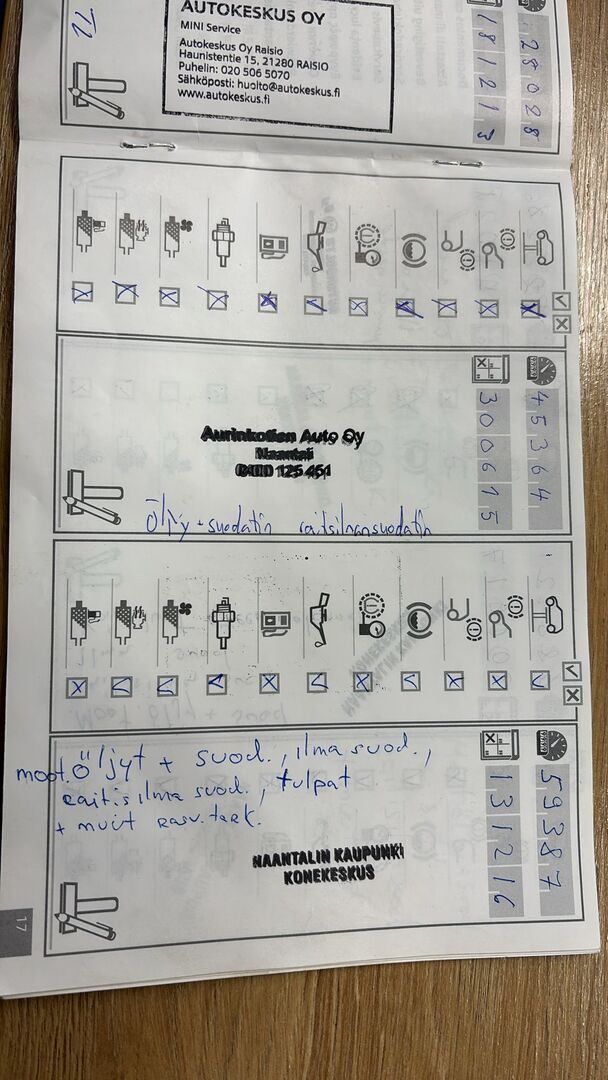 AUTOKESKUS OY
MINI Service
Autokeskus Oy Raisio
Haunistentie 15, 21280 RAISIO
Puhelin: 020 506 5070
Sähköposti: huolto@autokeskus.fi
www.autokeskus.fi
181213
28028
Aurinkotien Auto Oy
Naantali
öljy + suodatin raitisilmansuodatin
300615
45364
moot.öljyt + suod., ilma suod.,
raitis ilma suod., tulpat
+ muut
NAANTALIN KAUPUNKI
KONEKESKUS
131216
59387
17